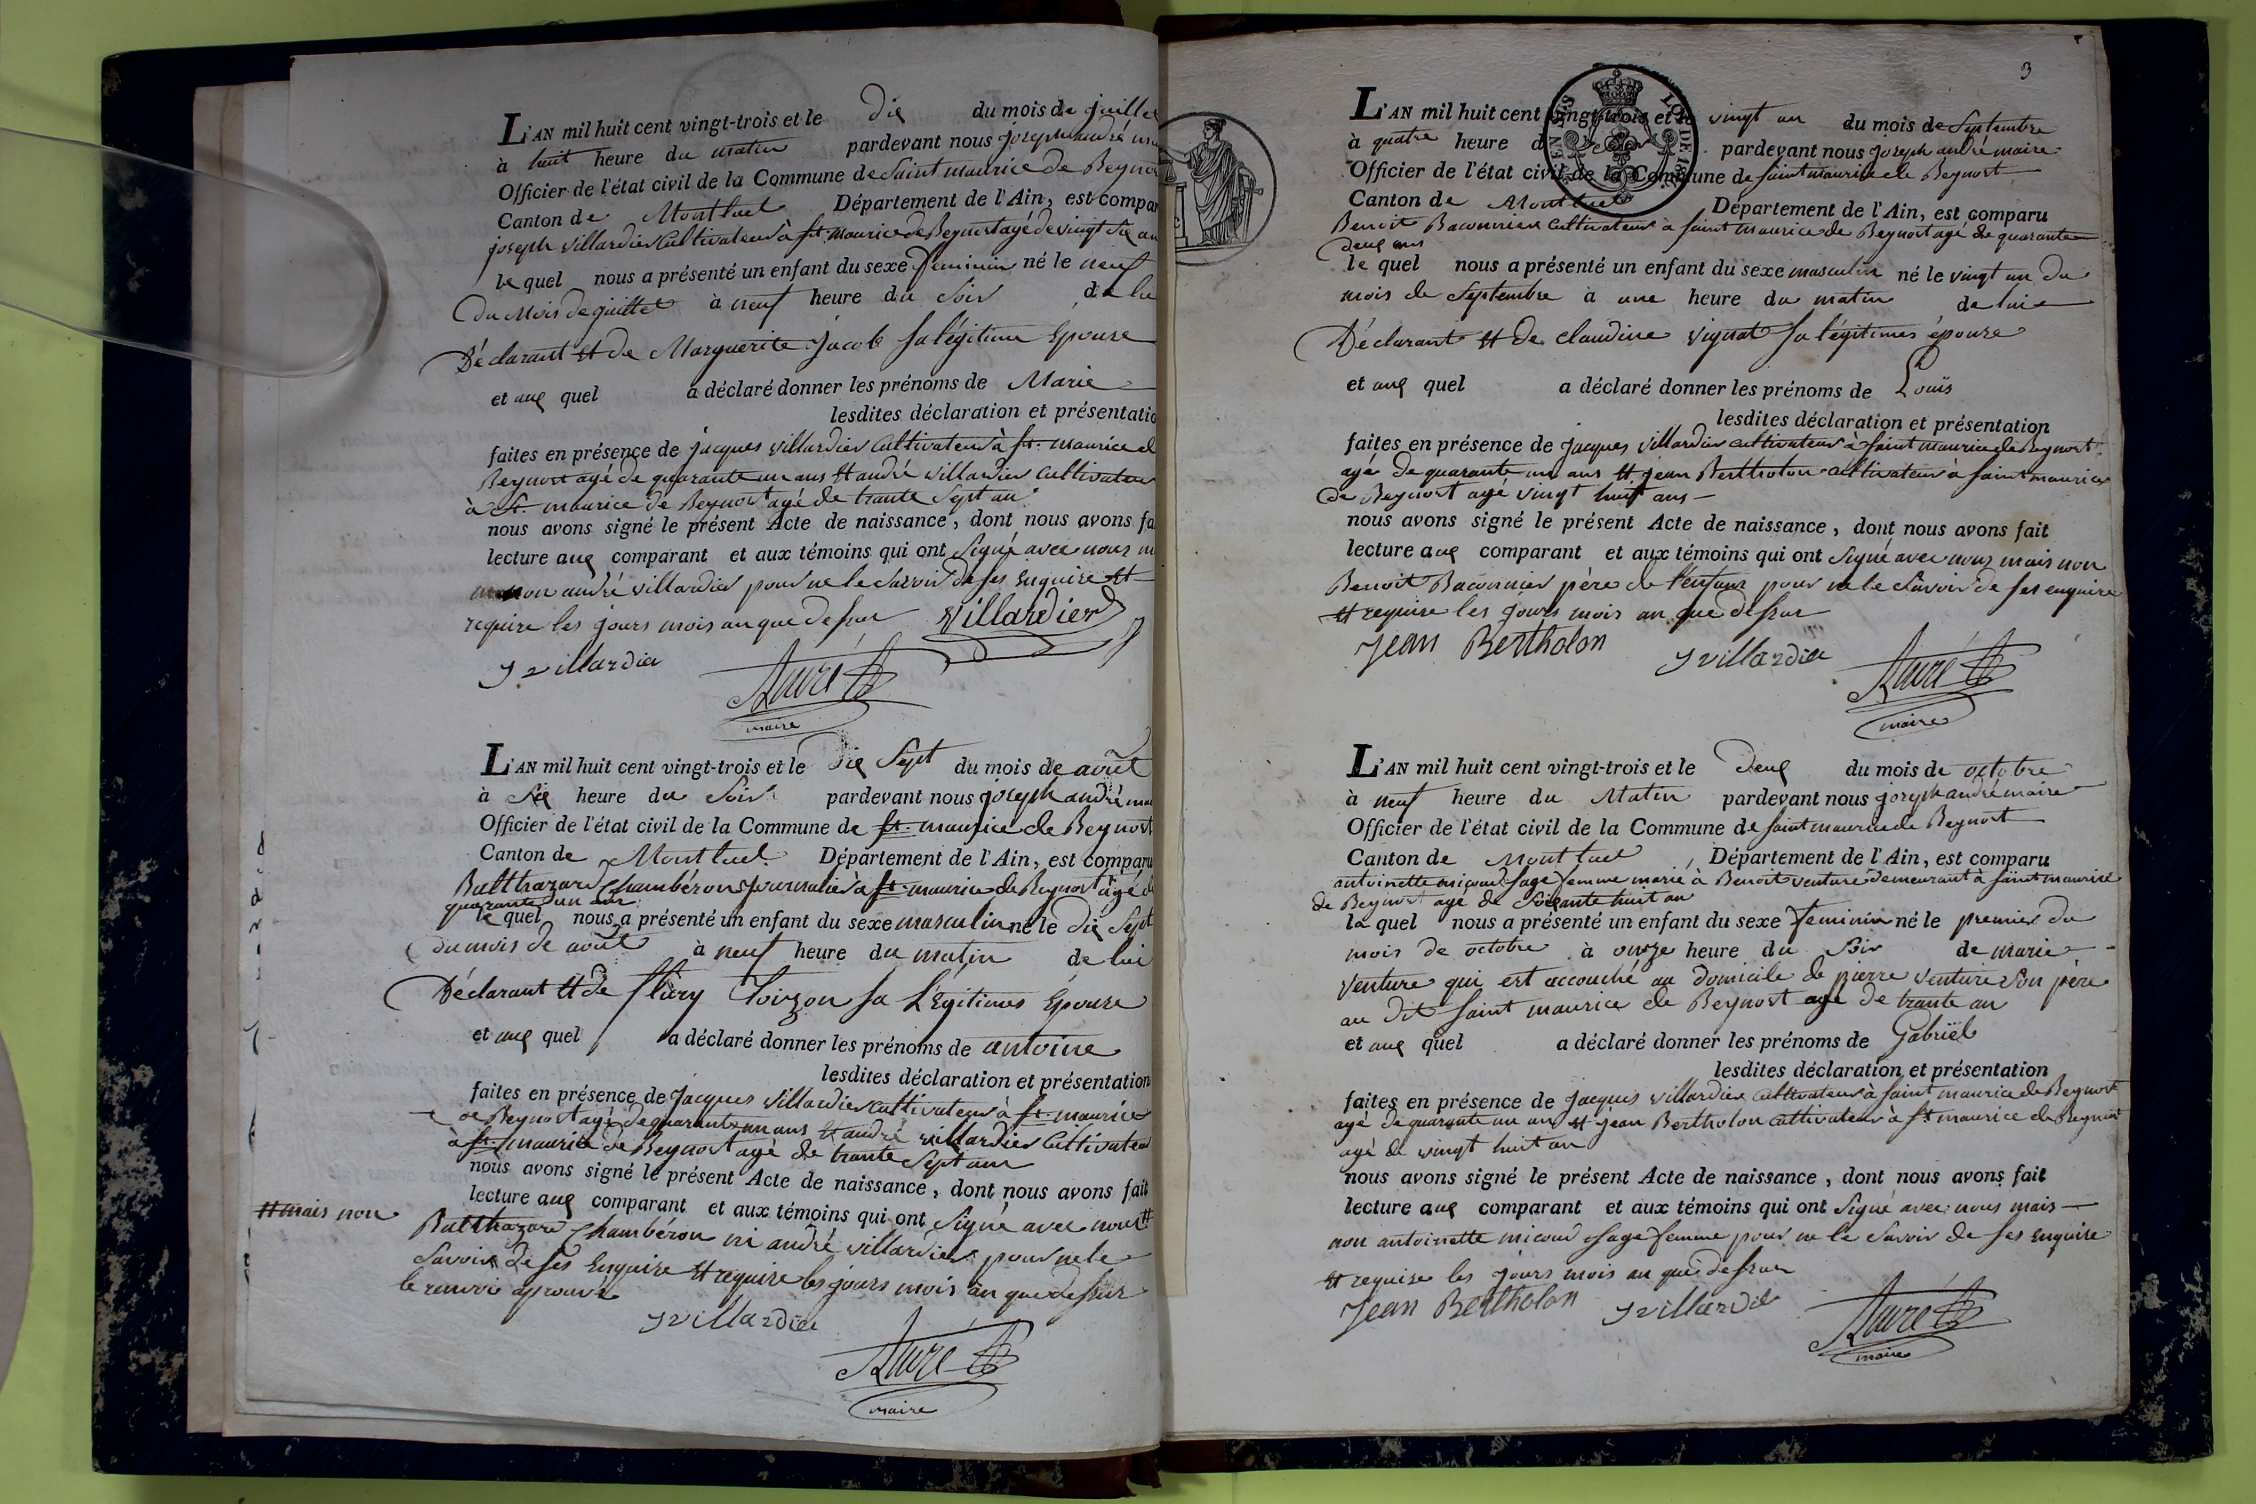 L'AN mil huit cent vingt-trois et le dix du mois de juillet
à huit heure du matin pardevant nous joseph andré
Officier de l'état civil de la Commune de Saint maurice de Beyno
Canton de Montluel Département de l'Ain, est compar
joseph villardier Cultivateur à st. maurice de Beynost agé de vingt six an
le quel nous a présenté un enfant du sexe feminin né le neuf
du Mois de juillet à neuf heure du Soir de lu
Déclarant et de Marguerite Jacob sa légitime Epouse
et aux quel a déclaré donner les prénoms de Marie
lesdites déclaration et présentatio
faites en présence de jacques villardier Cultivateur à st. maurice d
Beynost agé de quarante un ans et andré villardier Cultivateur
à st. maurice de Beynost agé de trante Sept an
nous avons signé le présent Acte de naissance, dont nous avons fa
lecture aux comparant et aux témoins qui ont Signé avec nous m
non andré villardier pour ne le Savoir de ses Enquire et
require les jours mois an que dessus Villardier
J villardier
André
maire
L'AN mil huit cent vingt-trois et le dix Sept du mois de août
à Six heure du Soir pardevant nous joseph andré mai
Officier de l'état civil de la Commune de st. maurice de Beynost
Canton de Montluel Département de l'Ain, est comparu
Balthazard Chambéron journalier à st. maurice de Beynost âgé de
quarante un an
le quel nous a présenté un enfant du sexe masculin né le dix Sept
du mois de août à neuf heure du matin de lui
Déclarant et de flury Loizon sa Légitimes Epouse
et aux quel a déclaré donner les prénoms de antoine
lesdites déclaration et présentation
faites en présence de Jacques villardier Cultivateur à st. maurice
de Beynost agé de quarante un ans et andré villardier Cultivateu
à st. maurice de Beynost agé de trante Sept ans
nous avons signé le présent Acte de naissance, dont nous avons fait
lecture aux comparant et aux témoins qui ont Signé avec nous #
# mais non
Balthazard Chambéron ni andré villardier pour ne le
Savoir de ses Enquire et require les jours mois an que dessus
le renvoi aprouvé
J villardier
André
maire
3
L'AN mil huit cent vingt-trois et le vingt un du mois de Septembre
à quatre heure du pardevant nous joseph andré maire
Officier de l'état civil de la Commune de saint maurice de Beynost
Canton de Montluel Département de l'Ain, est comparu
Benoit Baconnier Cultivateur à saint maurice de Beynost agé de quarante
deux ans
le quel nous a présenté un enfant du sexe masculin né le vingt un du
mois de Septembre à une heure du matin de lui
Déclarant et de claudine vignat sa légitimes épouse
et aux quel a déclaré donner les prénoms de Louïs
lesdites déclaration et présentation
faites en présence de jacques villardier cultivateur à saint maurice de Beynost
agé de quarante un ans et jean Bertholon Cultivateur à saint maurice
de Beynost agé vingt huit ans
nous avons signé le présent Acte de naissance, dont nous avons fait
lecture aux comparant et aux témoins qui ont Signé avec nous mais non
Benoit Baconnier père de l'enfant pour ne le Savoir de ses enquire
et require les jours mois an que dessus
Jean Bertholon J villardier
André
maire
L'AN mil huit cent vingt-trois et le deux du mois de octobre
à neuf heure du Matin pardevant nous joseph andré maire
Officier de l'état civil de la Commune de saint maurice de Beynost
Canton de Montluel Département de l'Ain, est comparu
antoinette micoud sage femme marié à Benoit venture demeurant à saint maurice
de Beynost agé de soixante huit an
la quel nous a présenté un enfant du sexe feminin né le premier du
mois de octobre à onze heure du Soir de marie
venture qui est accouché au domicile de pierre venture Son père
au dit saint maurice de Beynost agé de trante an
et aux quel a déclaré donner les prénoms de Gabriël
lesdites déclaration et présentation
faites en présence de jacques villardier cultivateur à saint maurice de Beynost
agé de quarante un an et jean Bertholon cultivateur à st maurice de Beynost
agé de vingt huit an
nous avons signé le présent Acte de naissance, dont nous avons fait
lecture aux comparant et aux témoins qui ont Signé avec nous mais
non antoinette micoud sage femme pour ne le Savoir de ses Enquire
et requise les jours mois an que dessus
Jean Bertholon J villardier
André
maire